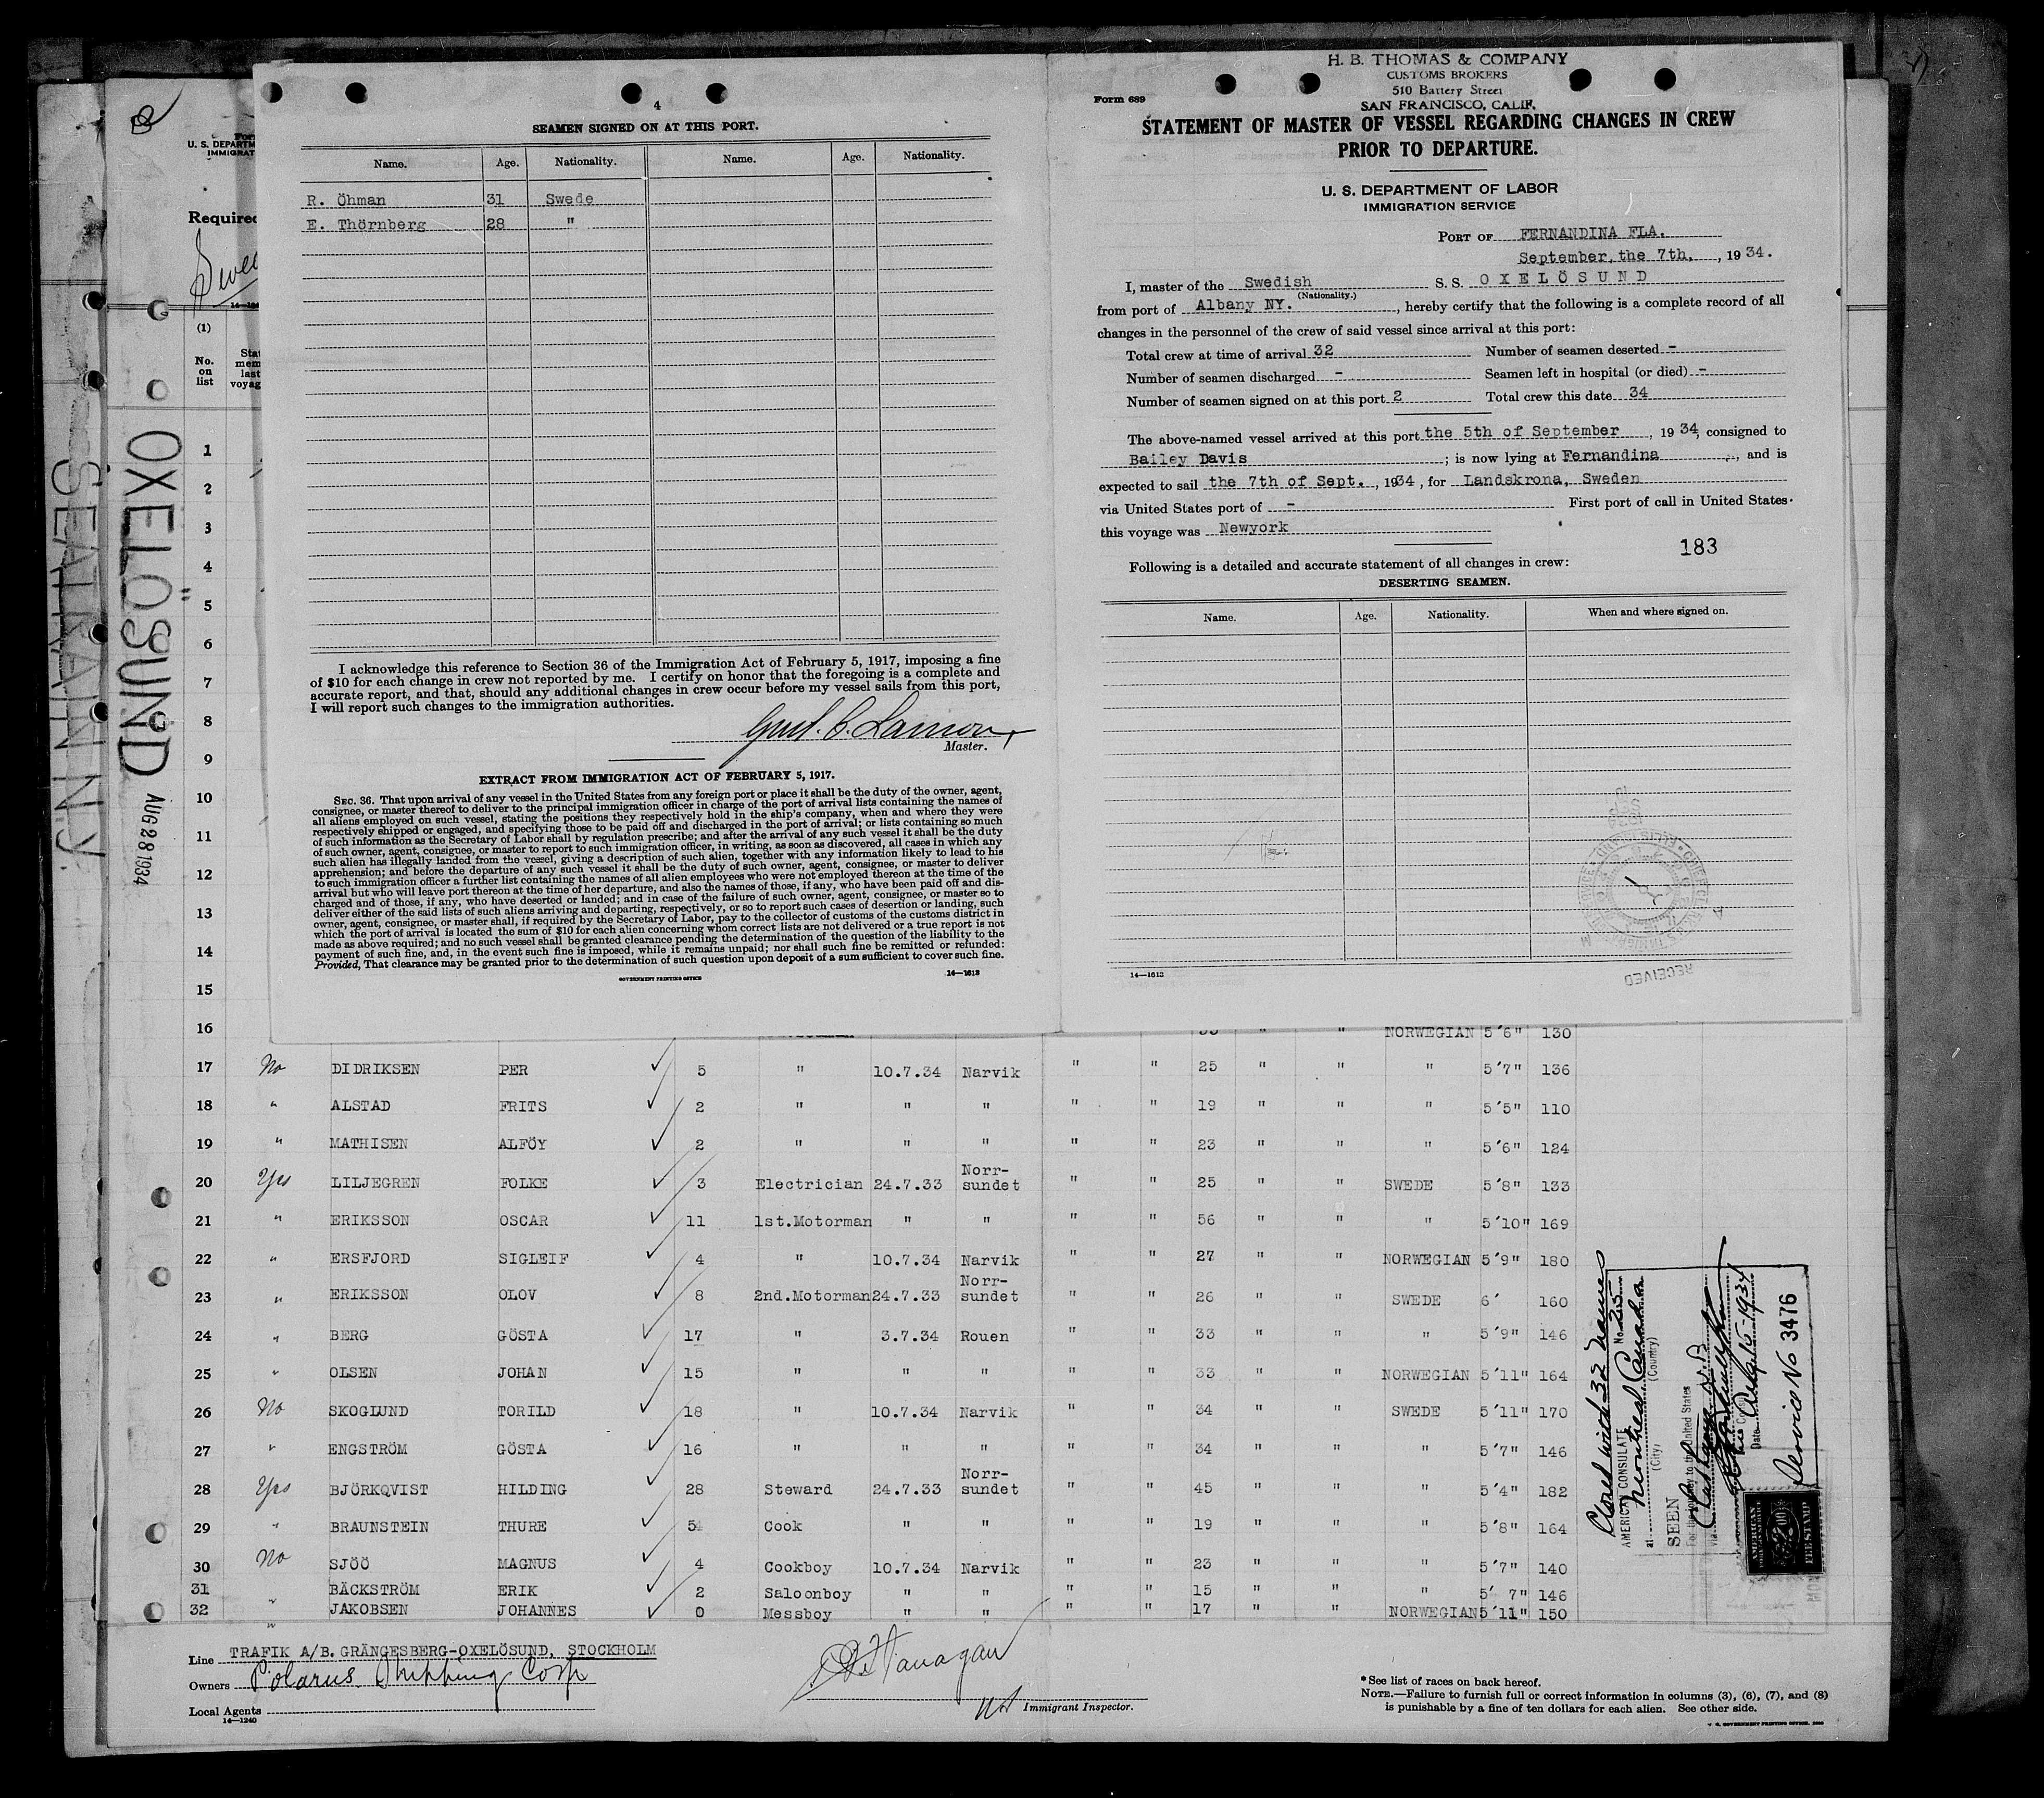 4
SEAMEN SIGNED ON AT THIS PORT.
Name. Age. Nationality. Name. Age. Nationality.
R. Öhman 31 Swede
E. Thörnberg 28 "
I acknowledge this reference to Section 36 of the Immigration Act of February 5, 1917, imposing a fine
of $10 for each change in crew not reported by me. I certify on honor that the foregoing is a complete and
accurate report, and that, should any additional changes in crew occur before my vessel sails from this port,
I will report such changes to the immigration authorities.
Master.
EXTRACT FROM IMMIGRATION ACT OF FEBRUARY 5, 1917.
SEC. 36. That upon arrival of any vessel in the United States from any foreign port or place it shall be the duty of the owner, agent,
consignee, or master thereof to deliver to the principal immigration officer in charge of the port of arrival lists containing the names of
all aliens employed on such vessel, stating the positions they respectively hold in the ship's company, when and where they were
respectively shipped or engaged, and specifying those to be paid off and discharged in the port of arrival; or lists containing so much
of such information as the Secretary of Labor shall by regulation prescribe; and after the arrival of any such vessel it shall be the duty
of such owner, agent, consignee, or master to report to such immigration officer, in writing, as soon as discovered, all cases in which any
such alien has illegally landed from the vessel, giving a description of such alien, together with any information likely to lead to his
apprehension; and before the departure of any such vessel it shall be the duty of such owner, agent, consignee, or master to deliver
to such immigration officer a further list containing the names of all alien employees who were not employed thereon at the time of the
arrival but who will leave port thereon at the time of her departure, and also the names of those, if any, who have been paid off and dis-
charged and of those, if any, who have deserted or landed; and in case of the failure of such owner, agent, consignee, or master so to
deliver either of the said lists of such aliens arriving and departing, respectively, or so to report such cases of desertion or landing, such
owner, agent, consignee, or master shall, if required by the Secretary of Labor, pay to the collector of customs of the customs district in
which the port of arrival is located the sum of $10 for each alien concerning whom correct lists are not delivered or a true report is not
made as above required; and no such vessel shall be granted clearance pending the determination of the question of the liability to the
payment of such fine, and, in the event such fine is imposed, while it remains unpaid; nor shall such fine be remitted or refunded:
Provided, That clearance may be granted prior to the determination of such question upon deposit of a sum sufficient to cover such fine.
GOVERNMENT PRINTING OFFICE 14—1613
H. B. THOMAS & COMPANY
CUSTOMS BROKERS
510 Battery Street
SAN FRANCISCO, CALIF.
Form 689
STATEMENT OF MASTER OF VESSEL REGARDING CHANGES IN CREW
PRIOR TO DEPARTURE.
U. S. DEPARTMENT OF LABOR
IMMIGRATION SERVICE
PORT OF FERNANDINA FLA.
September, the 7th, , 1934.
I, master of the Swedish S. S. OXELÖSUND
(Nationality.)
from port of Albany NY. , hereby certify that the following is a complete record of all
changes in the personnel of the crew of said vessel since arrival at this port:
Total crew at time of arrival 32 Number of seamen deserted -
Number of seamen discharged - Seamen left in hospital (or died) -
Number of seamen signed on at this port 2 Total crew this date 34
The above-named vessel arrived at this port the 5th of September , 1934, consigned to
Bailey Davis ; is now lying at Fernandina , and is
expected to sail the 7th of Sept. , 1934, for Landskrona, Sweden
via United States port of - First port of call in United States
this voyage was Newyork
183
Following is a detailed and accurate statement of all changes in crew:
DESERTING SEAMEN.
Name. Age. Nationality. When and where signed on.
14—1613
RECEIVED
U. S. DEPARTM
IMMIGRAT
Required
(1)
No. on list
Stat
mem
last
voyag
OXELÖSUND
AUG 28 1934
SEATRAIN N.Y.
1
2
3
4
5
6
7
8
9
10
11
12
13
14
15
16 " " NORWEGIAN 5'6" 130
17 No DIDRIKSEN PER 5 " 10.7.34 Narvik " " 25 " " " 5'7" 136
18 " ALSTAD FRITS 2 " " " " " 19 " " " 5'5" 110
19 " MATHISEN ALFÖY 2 " " " " " 23 " " " 5'6" 124
20 Yes LILJEGREN FOLKE 3 Electrician 24.7.33 Norr-sundet " " 25 " " SWEDE 5'8" 133
21 " ERIKSSON OSCAR 11 1st.Motorman " " " " 56 " " " 5'10" 169
22 " ERSFJORD SIGLEIF 4 " 10.7.34 Narvik " " 27 " " NORWEGIAN 5'9" 180
23 " ERIKSSON OLOV 8 2nd.Motorman 24.7.33 Norr-sundet " " 26 " " SWEDE 6' 160
24 " BERG GÖSTA 17 " 3.7.34 Rouen " " 33 " " " 5'9" 146
25 " OLSEN JOHAN 15 " " " " " 33 " " NORWEGIAN 5'11" 164
26 No SKOGLUND TORILD 18 " 10.7.34 Narvik " " 34 " " SWEDE 5'11" 170
27 " ENGSTRÖM GÖSTA 16 " " " " " 34 " " " 5'7" 146
28 Yes BJÖRKQVIST HILDING 28 Steward 24.7.33 Norr-sundet " " 45 " " " 5'4" 182
29 " BRAUNSTEIN THURE 5 Cook " " " " 19 " " " 5'8" 164
30 No SJÖÖ MAGNUS 4 Cookboy 10.7.34 Narvik " " 23 " " " 5'7" 140
31 " BÄCKSTRÖM ERIK 2 Saloonboy " " " " 15 " " " 5' 7" 146
32 " JAKOBSEN JOHANNES 0 Messboy " " " " 17 " " NORWEGIAN 5'11" 150
Closed with 32 names
AMERICAN CONSULATE No. 235
at Montreal Canada
(City) (Country)
SEEN
For the journey to the United States
Date Aug. 15-1934
Service No 3476
AMERICAN
FEE STAMP
Line TRAFIK A/B. GRÄNGESBERG-OXELÖSUND, STOCKHOLM
Owners Polarus Shipping Corp
Local Agents
14—1240
Immigrant Inspector.
* See list of races on back hereof.
NOTE.—Failure to furnish full or correct information in columns (3), (6), (7), and (8)
is punishable by a fine of ten dollars for each alien. See other side.